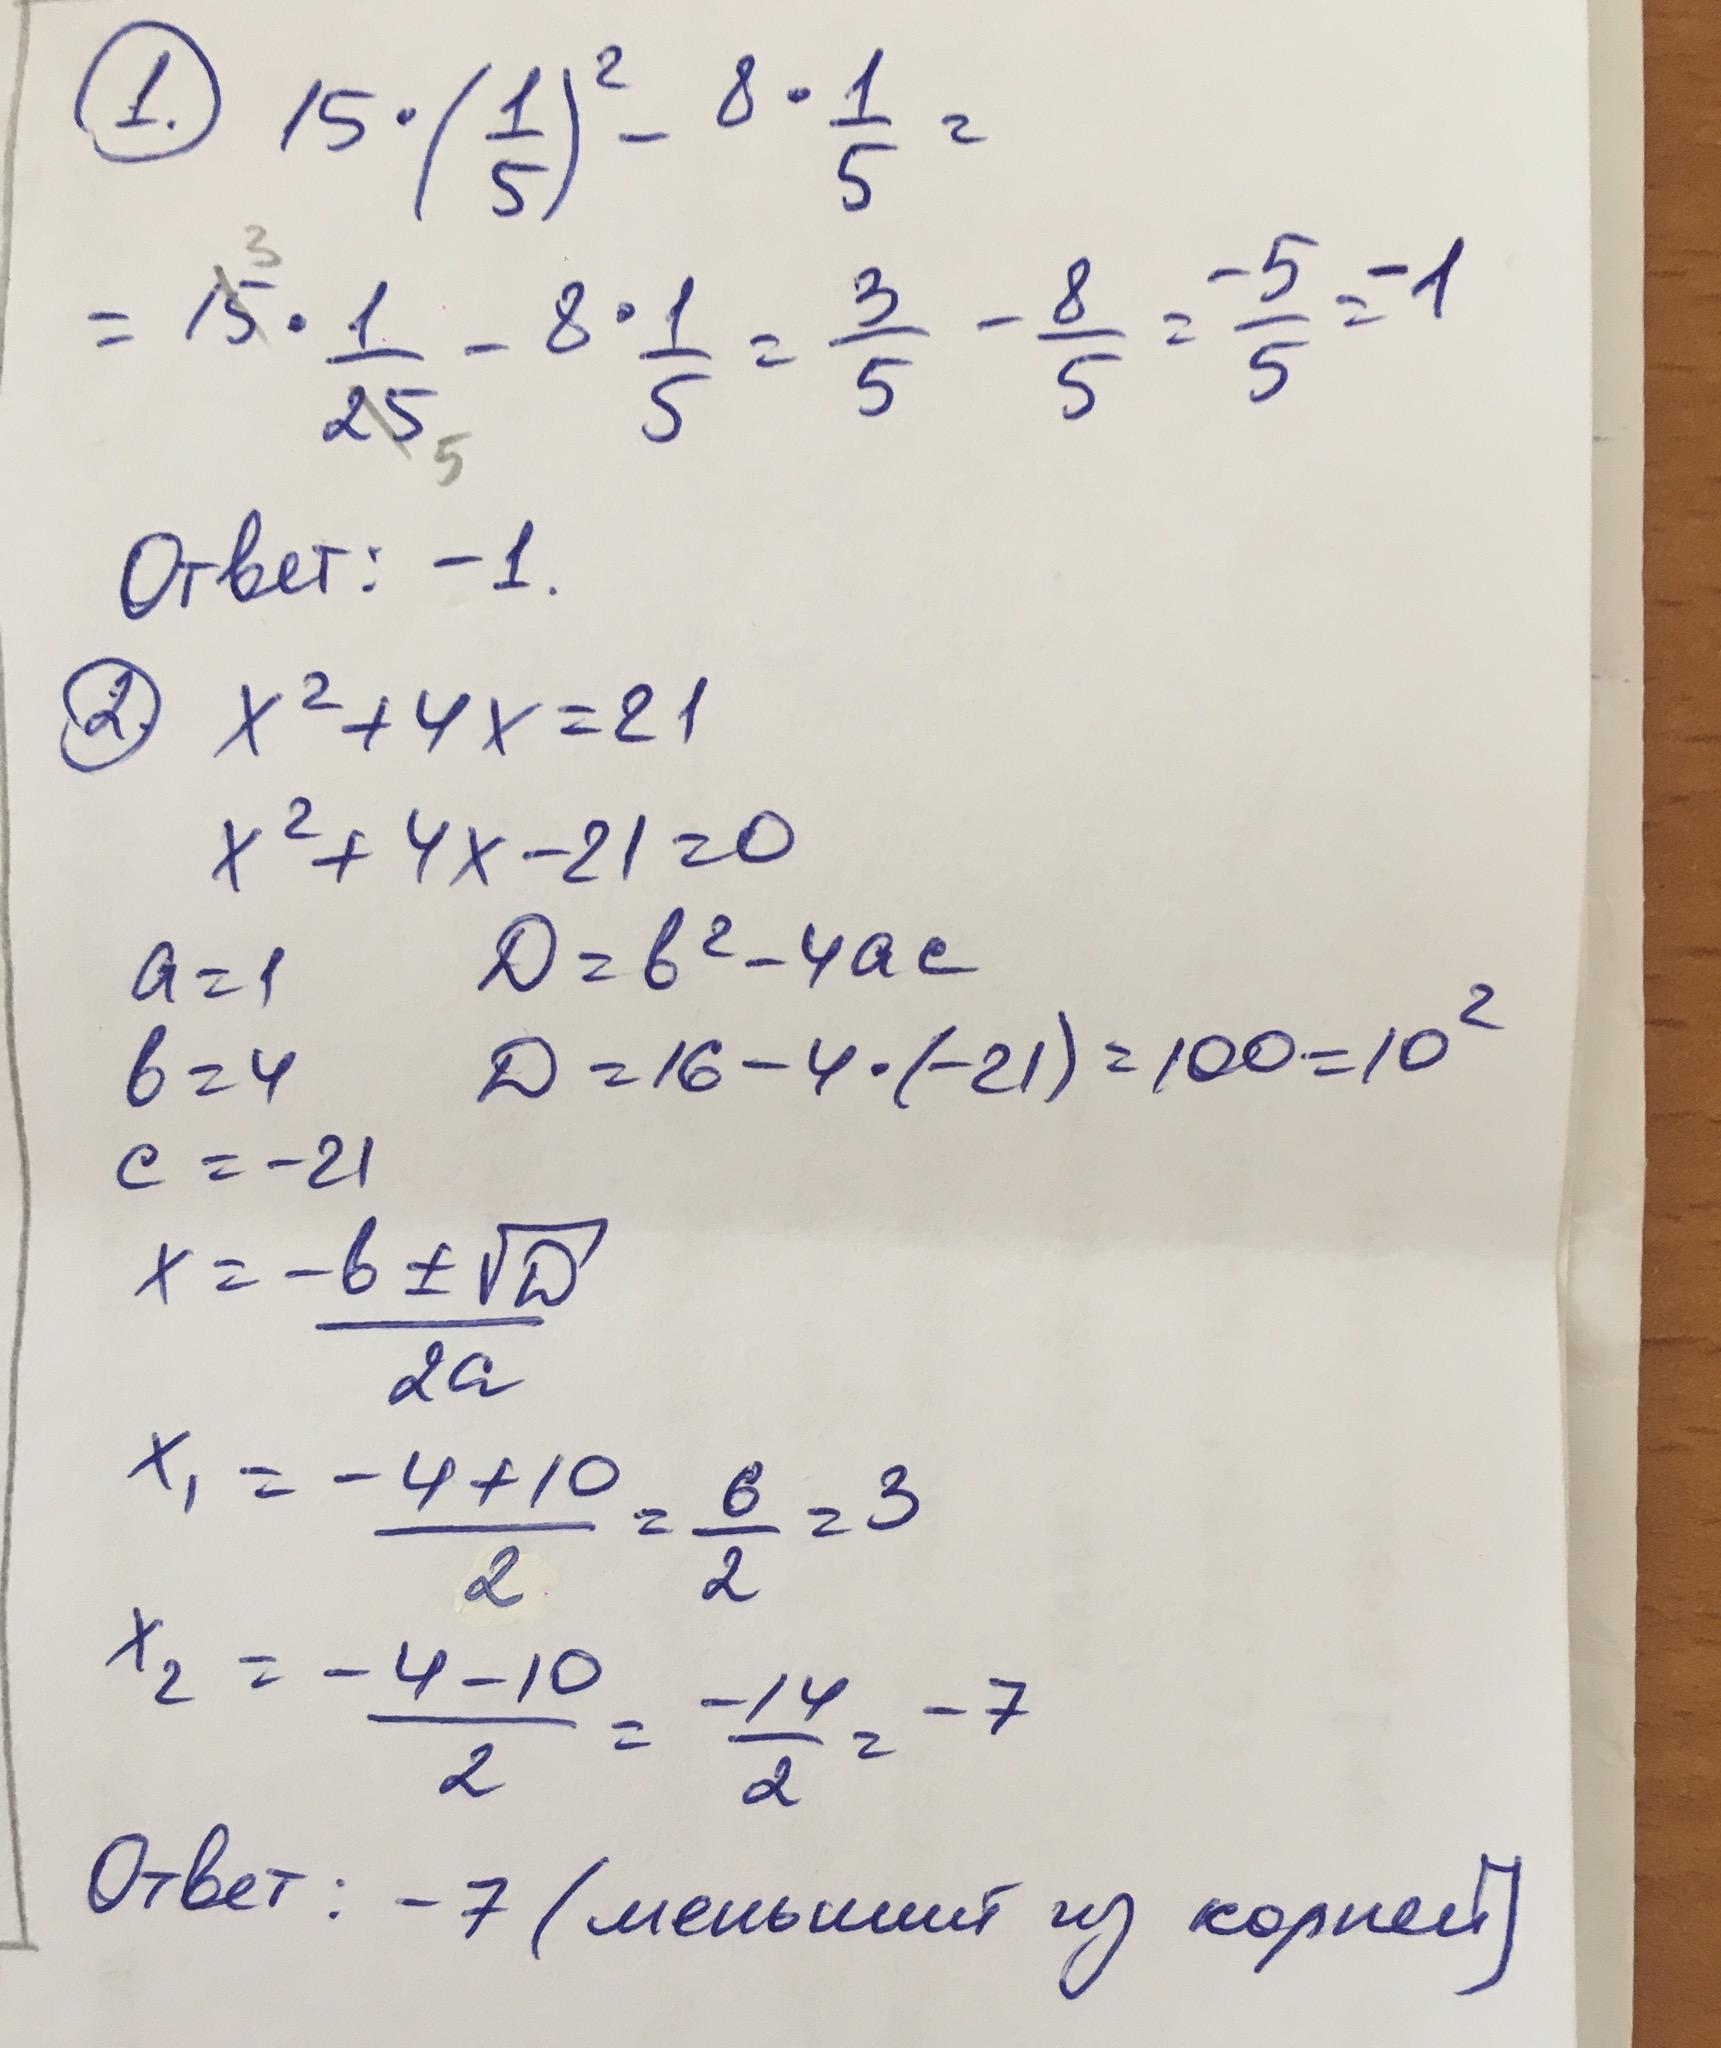 1. 15·(1/5)² - 8·1/5 =
= 15 3 · 1/25 5 - 8·1/5 = 3/5 - 8/5 = -5/5 = -1
Ответ: -1.
2. x² + 4x = 21
x² + 4x - 21 = 0
a = 1 D = b² - 4ac
b = 4 D = 16 - 4·(-21) = 100 = 10²
c = -21
x = -b ± √D / 2a
x₁ = -4+10 / 2 = 6/2 = 3
x₂ = -4-10 / 2 = -14/2 = -7
Ответ: -7 (меньший из корней)